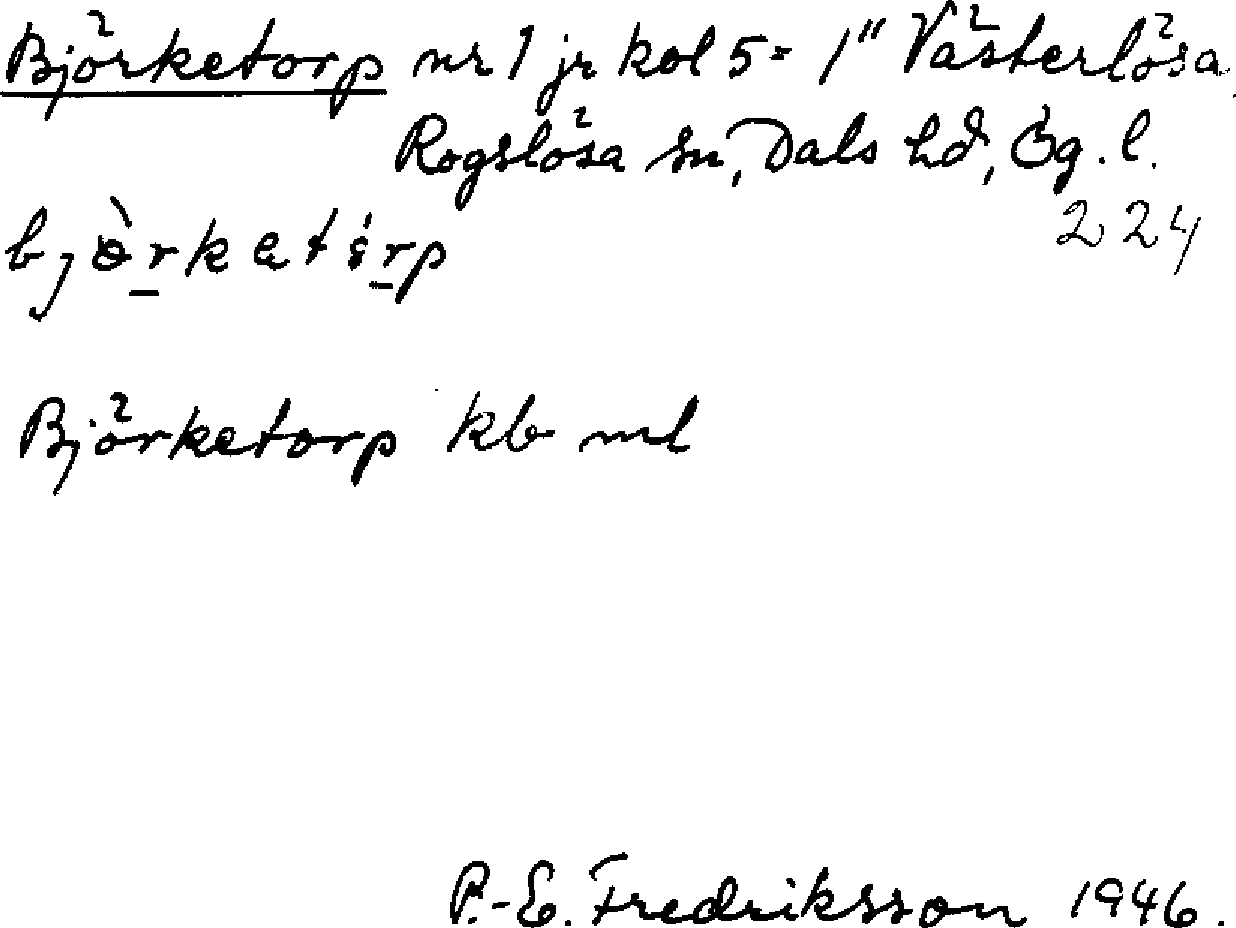 Björketorp nr 1 jr kol 5 = 1" Västerlösa
Rogslösa sn, Dals hd, Ög. l.
224
Björketorp kb ml
P.-E. Fredriksson 1946.